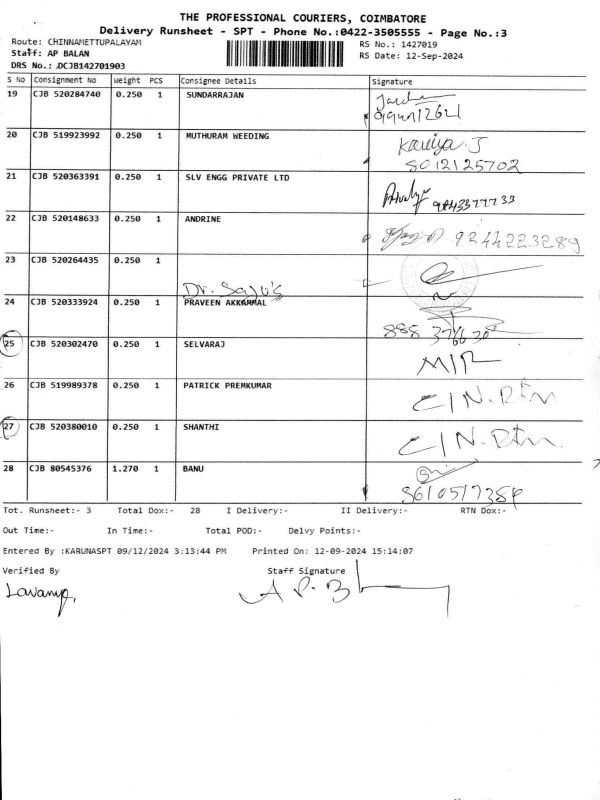 THE PROFESSIONAL COURIERS, COIMBATORE
Delivery Runsheet - SPT - Phone No.:0422-3505555 - Page No.:3
Route: CHINNAMETTUPALAYAM RS No.: 1427019
Staff: AP BALAN RS Date: 12-Sep-2024
DRS No.: DCJB142701903
S No Consignment No Weight PCS Consignee Details Signature
19 CJB 520284740 0.250 1 SUNDARRAJAN
20 CJB 519923992 0.250 1 MUTHURAM WEEDING
8012125702
21 CJB 520363391 0.250 1 SLV ENGG PRIVATE LTD
22 CJB 520148633 0.250 1 ANDRINE
9244223289
23 CJB 520264435 0.250 1
Dr. Saju's
24 CJB 520333924 0.250 1 PRAVEEN AKKAMMAL
25 CJB 520302470 0.250 1 SELVARAJ
26 CJB 519989378 0.250 1 PATRICK PREMKUMAR C/N.Rtn
27 CJB 520380010 0.250 1 SHANTHI C/N.Rtn.
28 CJB 80545376 1.270 1 BANU
Tot. Runsheet:- 3 Total Dox:- 28 I Delivery:- II Delivery:- RTN Dox:-
Out Time:- In Time:- Total POD:- Delvy Points:-
Entered By :KARUNASPT 09/12/2024 3:13:44 PM Printed On: 12-09-2024 15:14:07
Verified By Staff Signature
Lavanya, A P. B